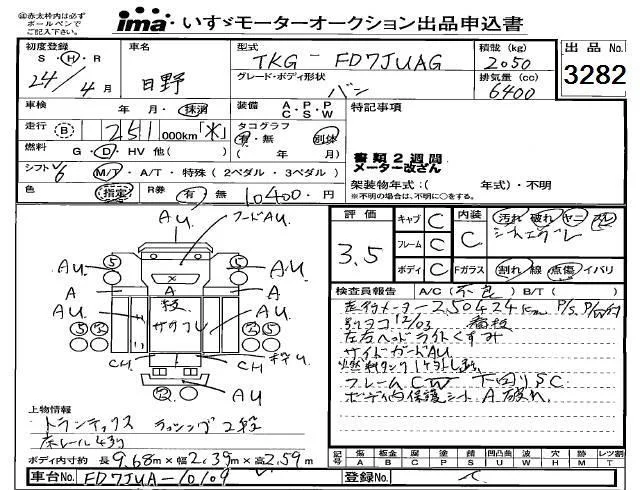 ㊟赤太枠内は必ず
ボールペンで
ご記入下さい。
ima いすゞモーターオークション出品申込書
初度登録 車名 型式 積載 (kg) 出品No.
S・H・R TKG-FD7JUAG 2050
24年4月 日野 グレード・ボディ形状 排気量 (cc) 3282
バン 6400
車検 年・月・抹消 装備 A・P・P 特記事項
C・S・W
走行 B 251,000km「不」 タコグラフ
有・無 別体
燃料 G・D・HV 他( ) ( 年 月) 書類2週間
メーター改ざん
シフト V6 M/T・A/T・特殊(2ペダル・3ペダル) 架装物年式:( 年式)・不明
色 指定 R券 有 無 10400円 ※不明の場合は、不明に○をする。
評価 3.5
キャブ C 内装 C 汚れ 破れ ヤニ
フレーム C
ボディ C Fガラス 割れ 線 点傷 イバリ
AU フードAU
5 AU 5 AU
A A A
AU AU
2 2 2 2
CH CH
2 AU
検査員報告 A/C(不良) B/T( )
走行メーター250424km P/S,P/W付
左右ヘッドライトくすみ
サイドガードAU
フレームCW 下回りSC
ボデー内保護シートA破れ
上物情報
トランテックス ラッシング2段
床レール4列
ボディ内寸約 長9.68m×幅2.39m×高2.59m
記号 傷A 板金B 腐C 塗P 錆S 凹凸凹U 波W 穴H 跡M レツ割T
車台No. FD7JUA-10109 登録No.